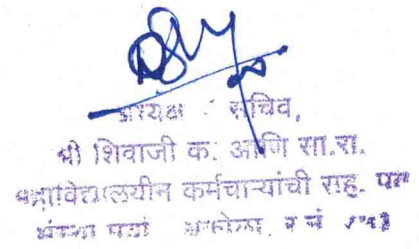 अध्यक्ष / सचिव,
श्री शिवाजी क. आणि सा.रा.
महाविद्यालयीन कर्मचाऱ्यांची सह. पत
संस्था मर्या अकोला र नं